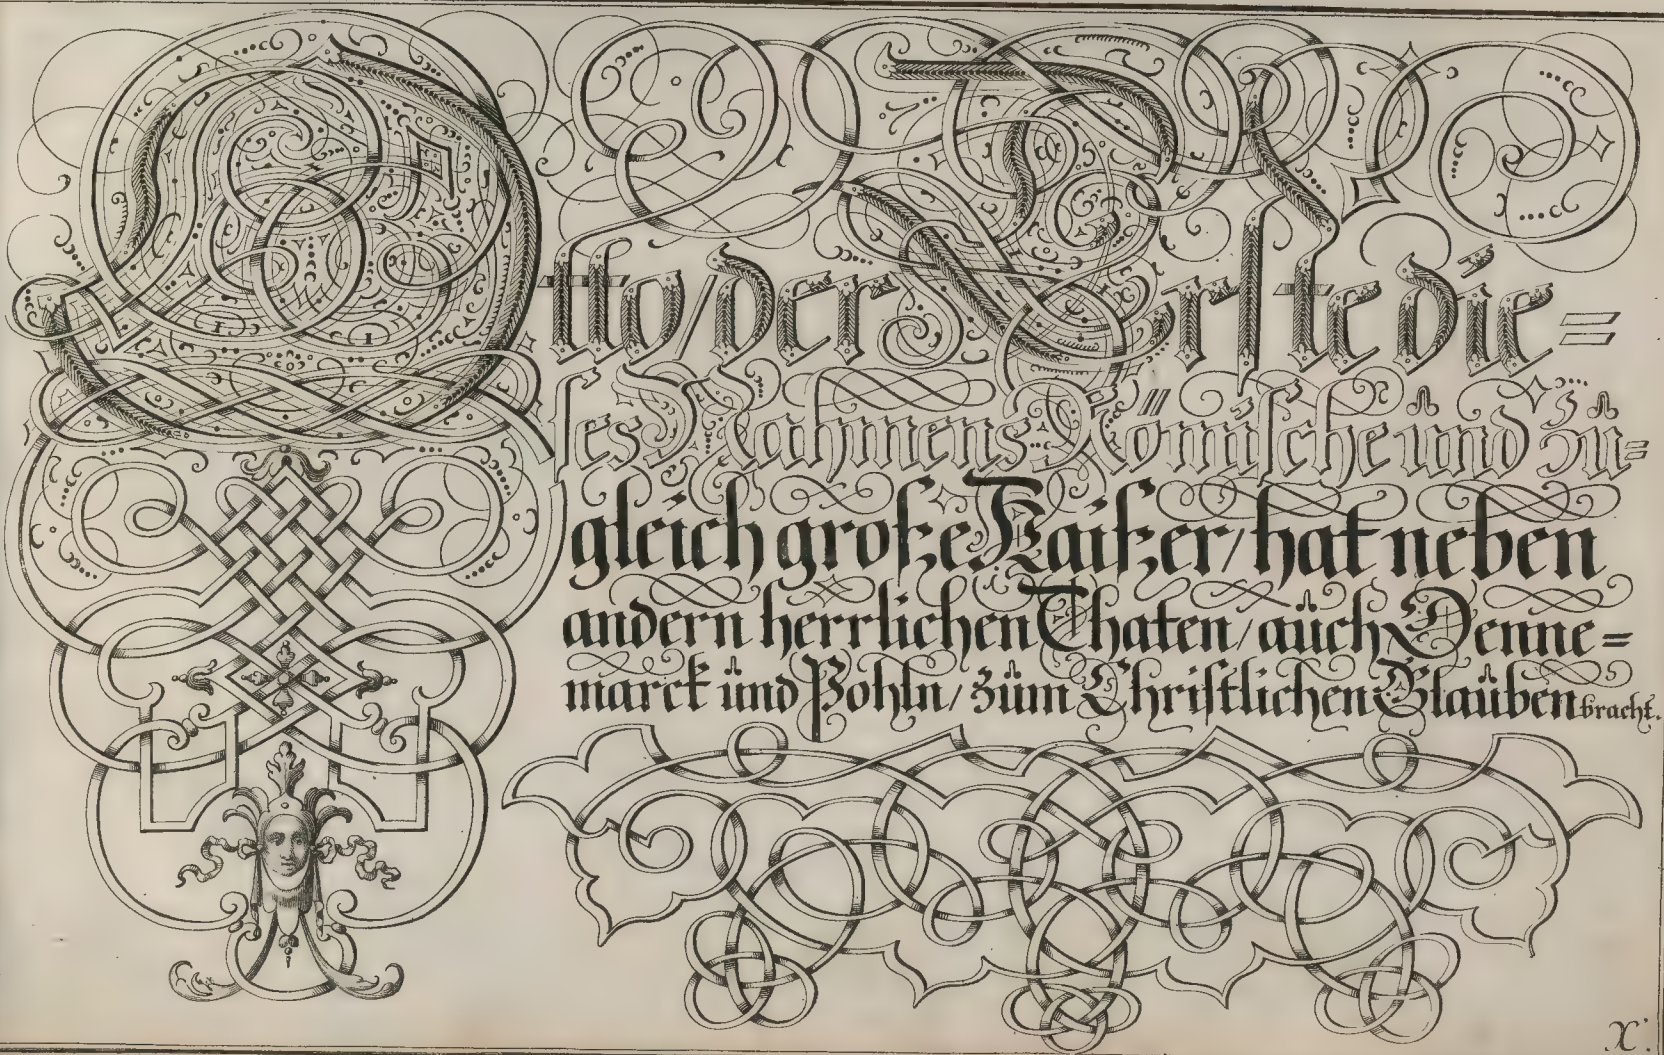 Otto/ der Erste die=
ses Nahmens Römische und zu=
gleich große Kaißer/ hat neben
andern herrlichen Thaten/ auch Denne=
marck und Pohln/ zum Christlichen Glauben bracht.
X.